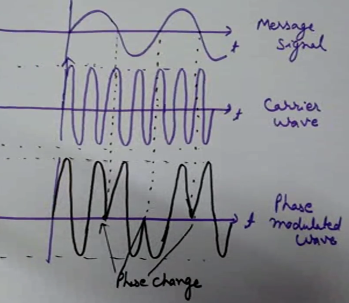 Message
Signal
t
Carrier
Wave
t
Phase
modulated
Wave
t
Phase change